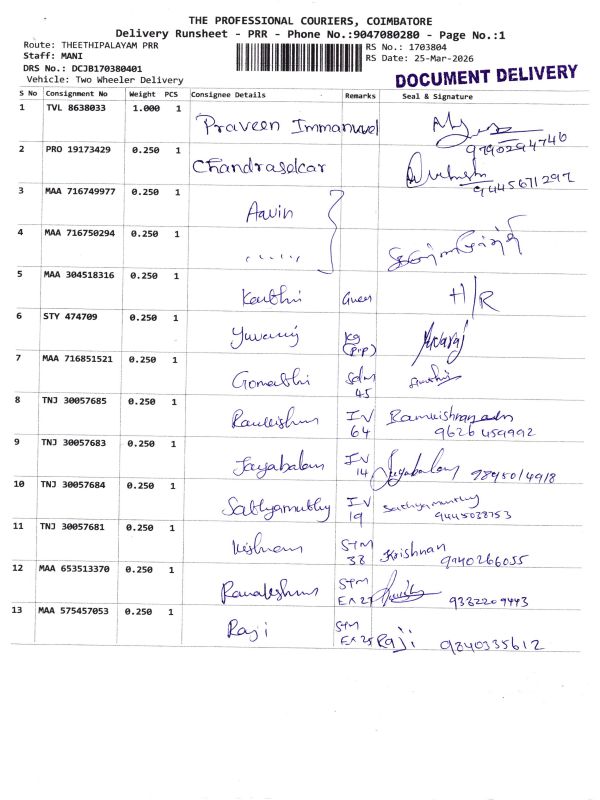 THE PROFESSIONAL COURIERS, COIMBATORE
Delivery Runsheet - PRR - Phone No.:9047080280 - Page No.:1
Route: THEETHIPALAYAM PRR
RS No.: 1703804
Staff: MANI
RS Date: 25-Mar-2026
DRS No.: DCJB170380401
DOCUMENT DELIVERY
Vehicle: Two Wheeler Delivery
S No Consignment No Weight PCS Consignee Details Remarks Seal & Signature
1 TVL 8638033 1.000 1 Praveen Immanuvel
9790294746
2 PRO 19173429 0.250 1 Chandrasekar
9445671297
3 MAA 716749977 0.250 1 Aavin
4 MAA 716750294 0.250 1 .....
5 MAA 304518316 0.250 1 H/R
6 STY 474709 0.250 1 Yuvaraj Kg
7 MAA 716851521 0.250 1 Gomathi
45
8 TNJ 30057685 0.250 1 IV
64 9626459992
9 TNJ 30057683 0.250 1 Jayabalan IV Jayabalan 9895014918
14
10 TNJ 30057684 0.250 1 Sathyamuthy IV Sathyamurthy
19 9445038753
11 TNJ 30057681 0.250 1 STM Krishnan
38 9940266055
12 MAA 653513370 0.250 1 STM
Ex 27 9382209443
13 MAA 575457053 0.250 1 Raji STM
Ex 25 Raji 9840335612